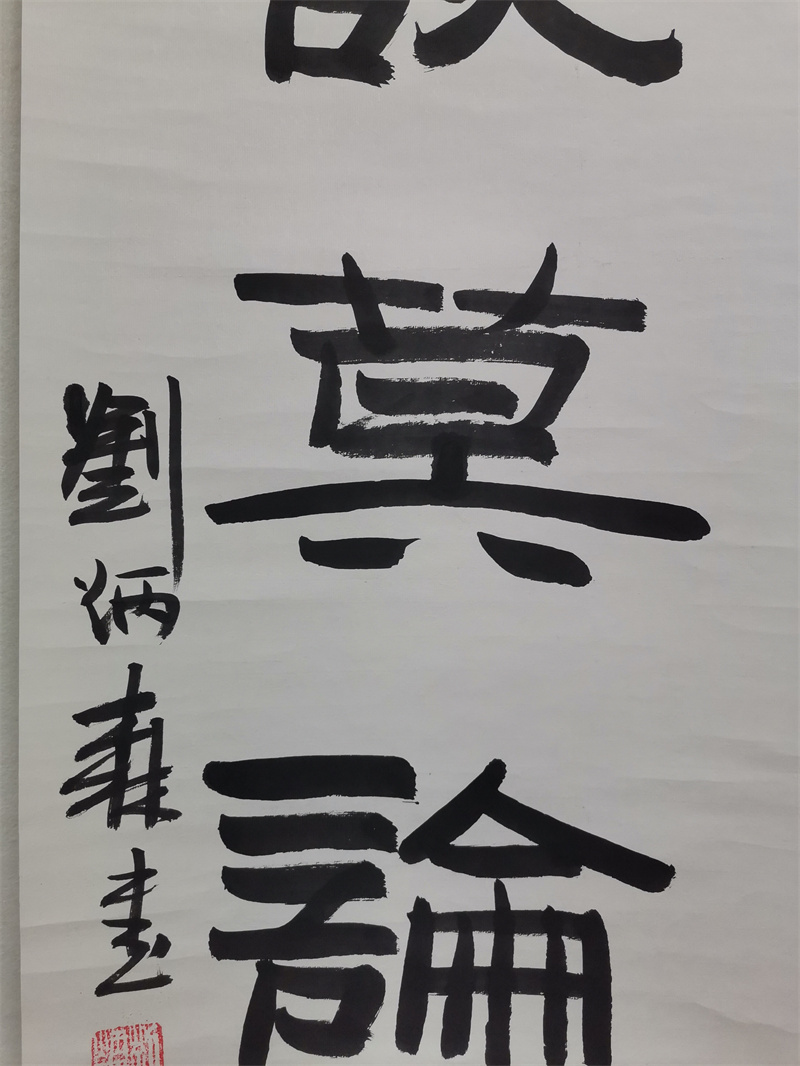 莫論
劉炳森書